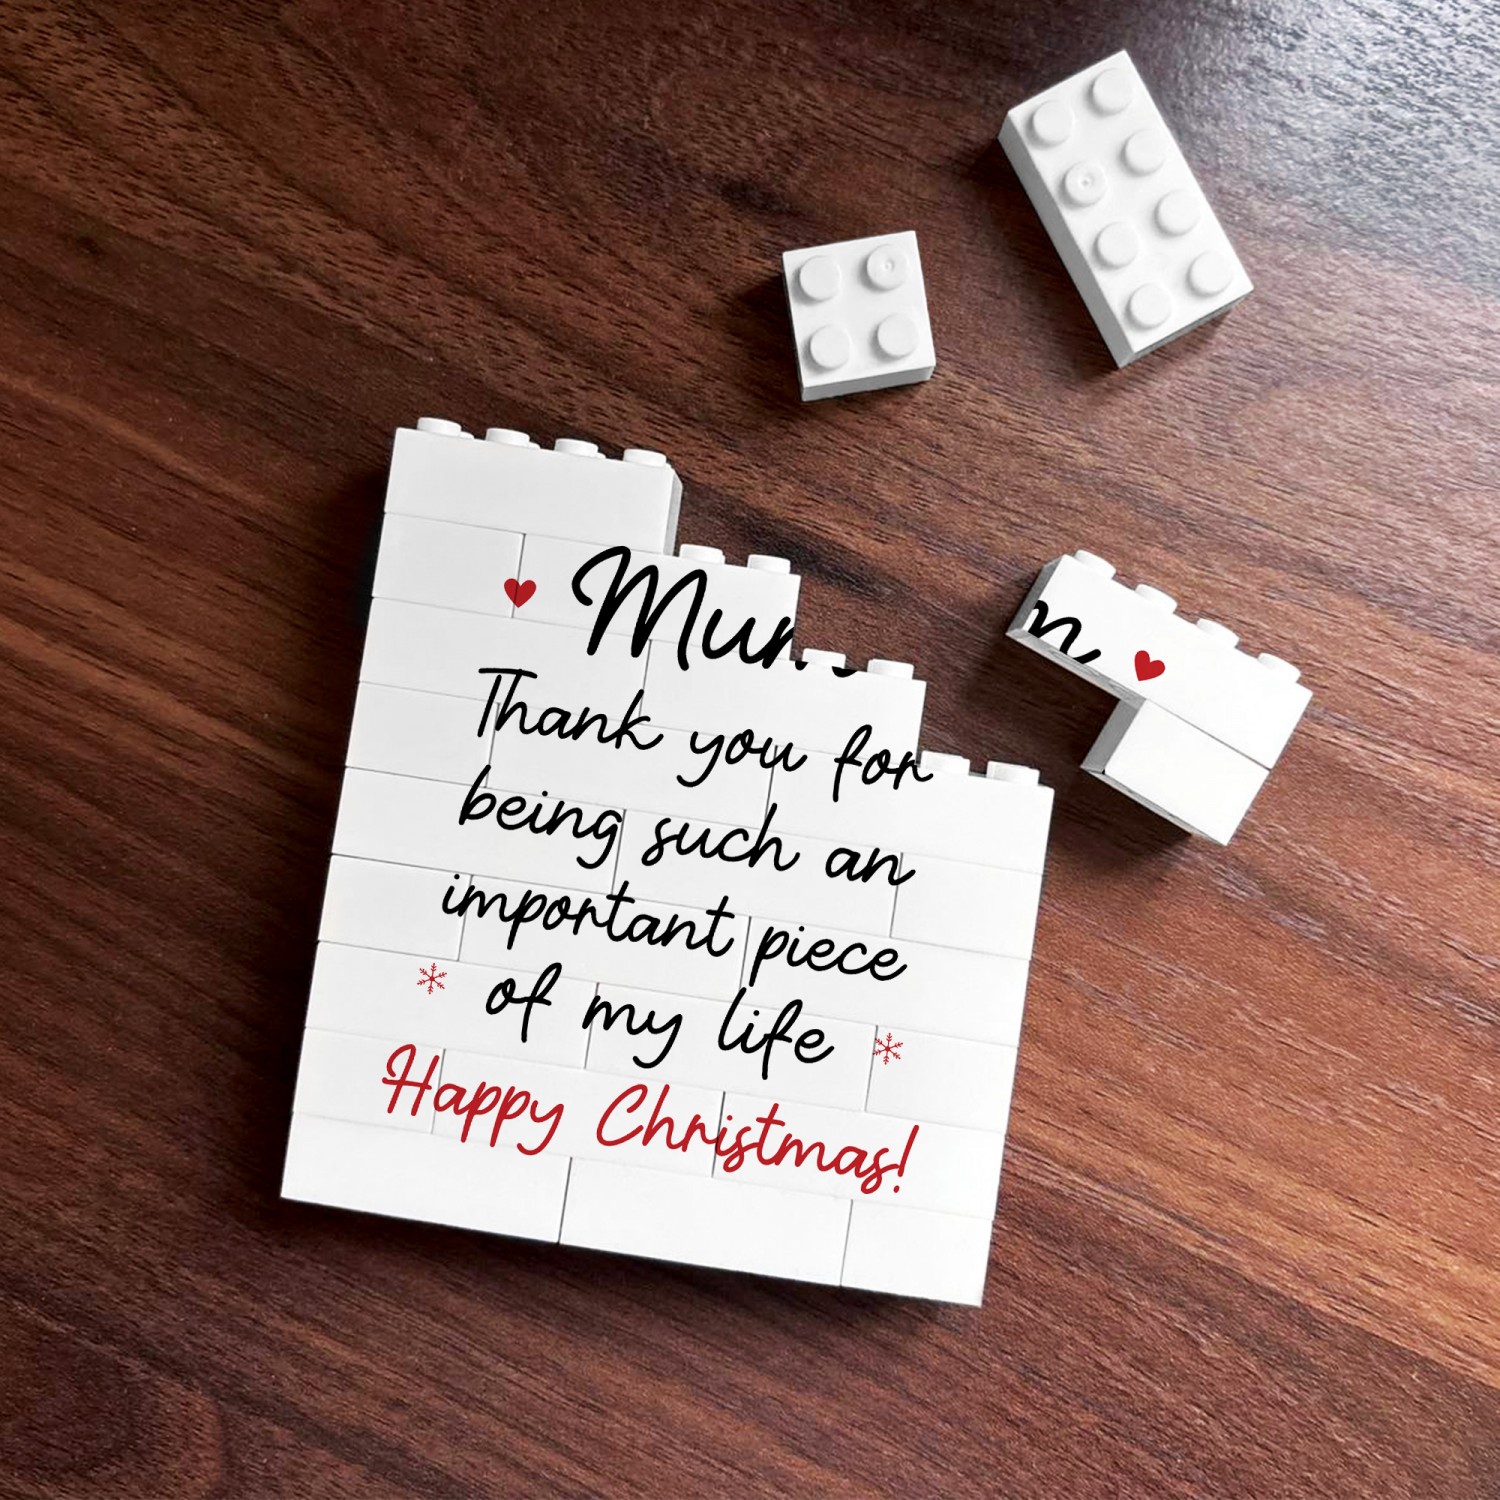 Mum
Thank you for
being such an
important piece
of my life
Happy Christmas!